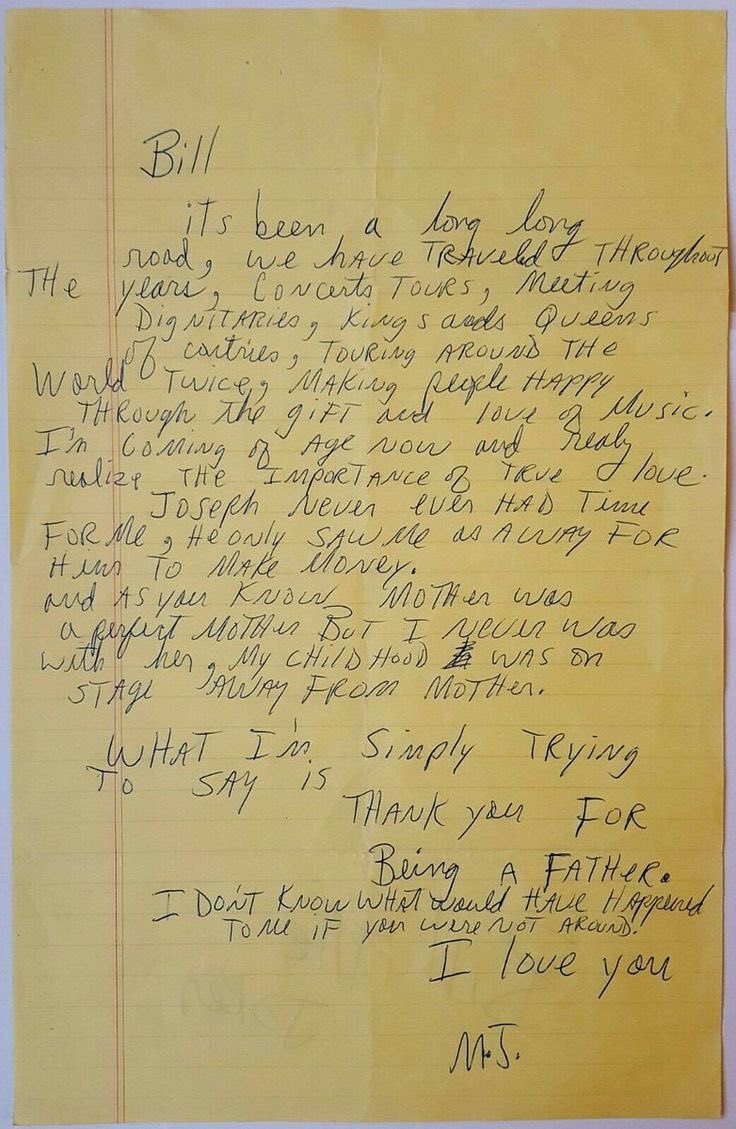 Bill
its been a long long
road, we have TRAveled THROughout
THe years, Concerts TOURS, Meeting
DigNiTARies, Kings ands Queens
of contries, TOURing AROUND THe
World Twice, MAKing people HAppy
THROugh the giFT and love of Music.
I'm Coming of Age now and realy
realize THe IMPORTANce of TRue love.
Joseph Never ever HAD Time
FOR Me, He only SAW Me as A WAY FOR
Him TO MAKe Money.
and As you KNOW MOTHer was
a perfect MOTHer BuT I Never was
with her, My CHiLDHOOD was on
STAge AWAY FROM MOTHer.
WHAT I'm Simply TRying
To SAY is
THANK you FOR
Being A FATHeR.
I DON'T KNOW WHAT would HAVe HAppened
To Me iF you weRe NOT AROUND.
I love you
M.J.